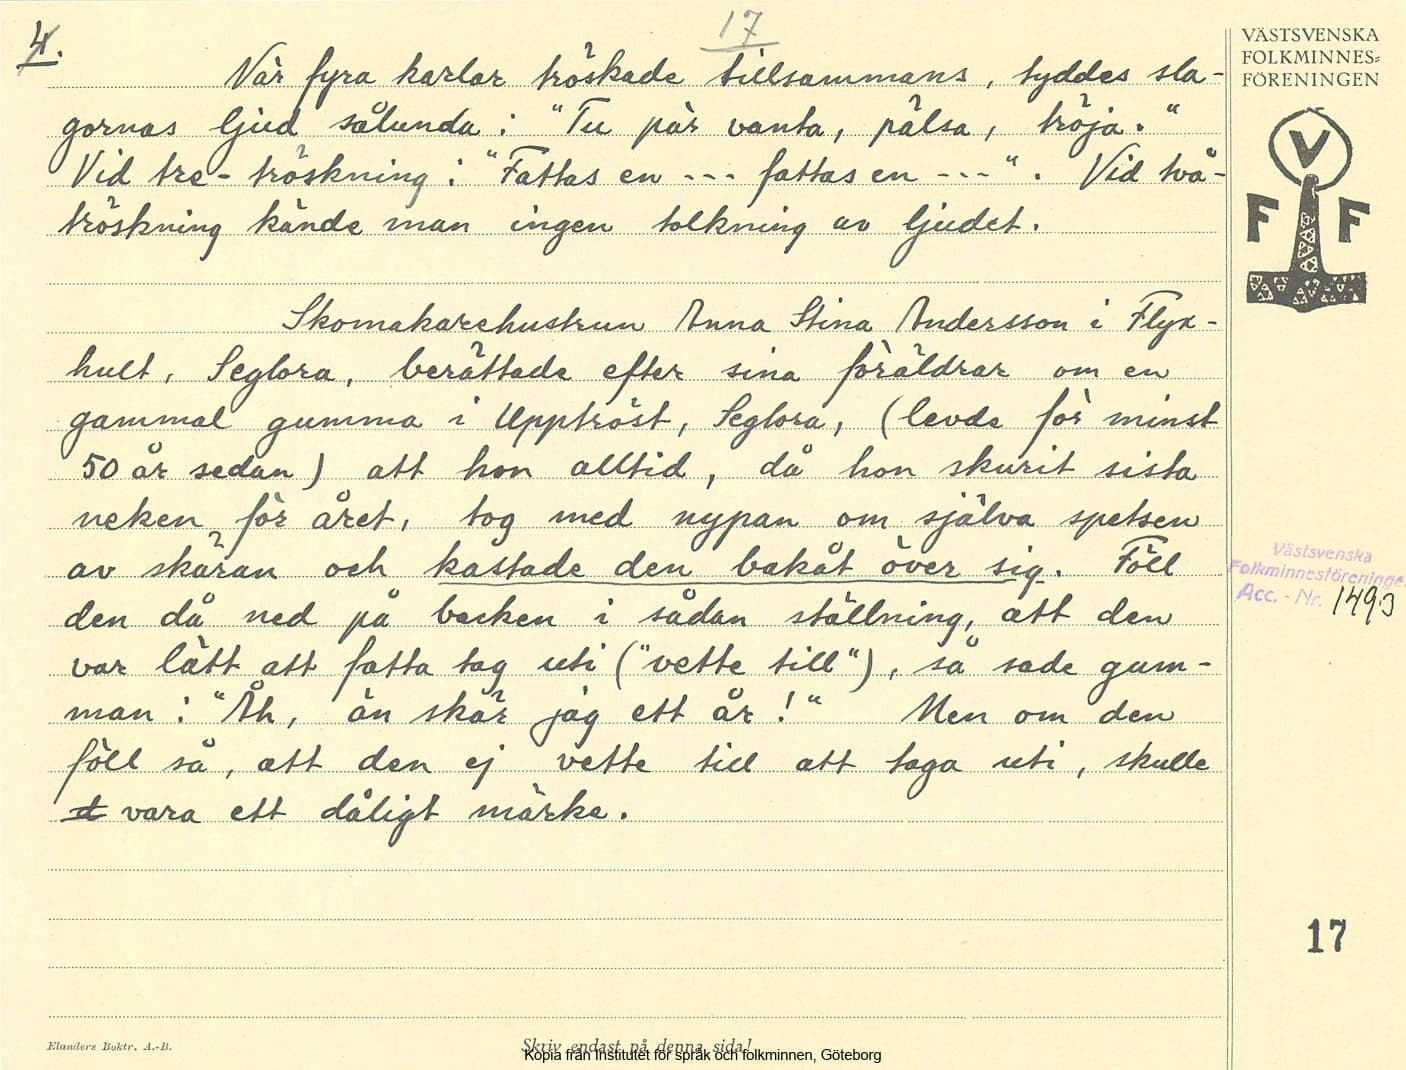 4.
17
VÄSTSVENSKA
FOLKMINNES=
FÖRENINGEN
V
F F
När fyra karlar tröskade tillsammans, tyddes sla-
gornas ljud sålunda: "Tu pär vanta, pälsa, tröja."
Vid tre-tröskning: "Fattas en --- fattas en ---". Vid två-
tröskning kände man ingen tolkning av ljudet.
Skomakarehustrun Anna Stina Andersson i Flyx-
hult, Seglora, berättade efter sina föräldrar om en
gammal gumma i Upptröst, Seglora, (levde för minst
50 år sedan) att hon alltid, då hon skurit sista
neken för året, tog med nypan om själva spetsen
av skäran och kastade den bakåt över sig. Föll
den då ned på backen i sådan ställning, att den
var lätt att fatta tag uti ("vette till"), så sade gum-
man: "Åh, än skär jag ett år!" Men om den
föll så, att den ej vette till att taga uti, skulle
vara ett dåligt märke.
Västsvenska
Folkminnesföreningen
Acc. - Nr. 1493
17
Elanders Boktr. A.-B.
Skriv endast på denna sida!
Kopia från Institutet för språk och folkminnen, Göteborg